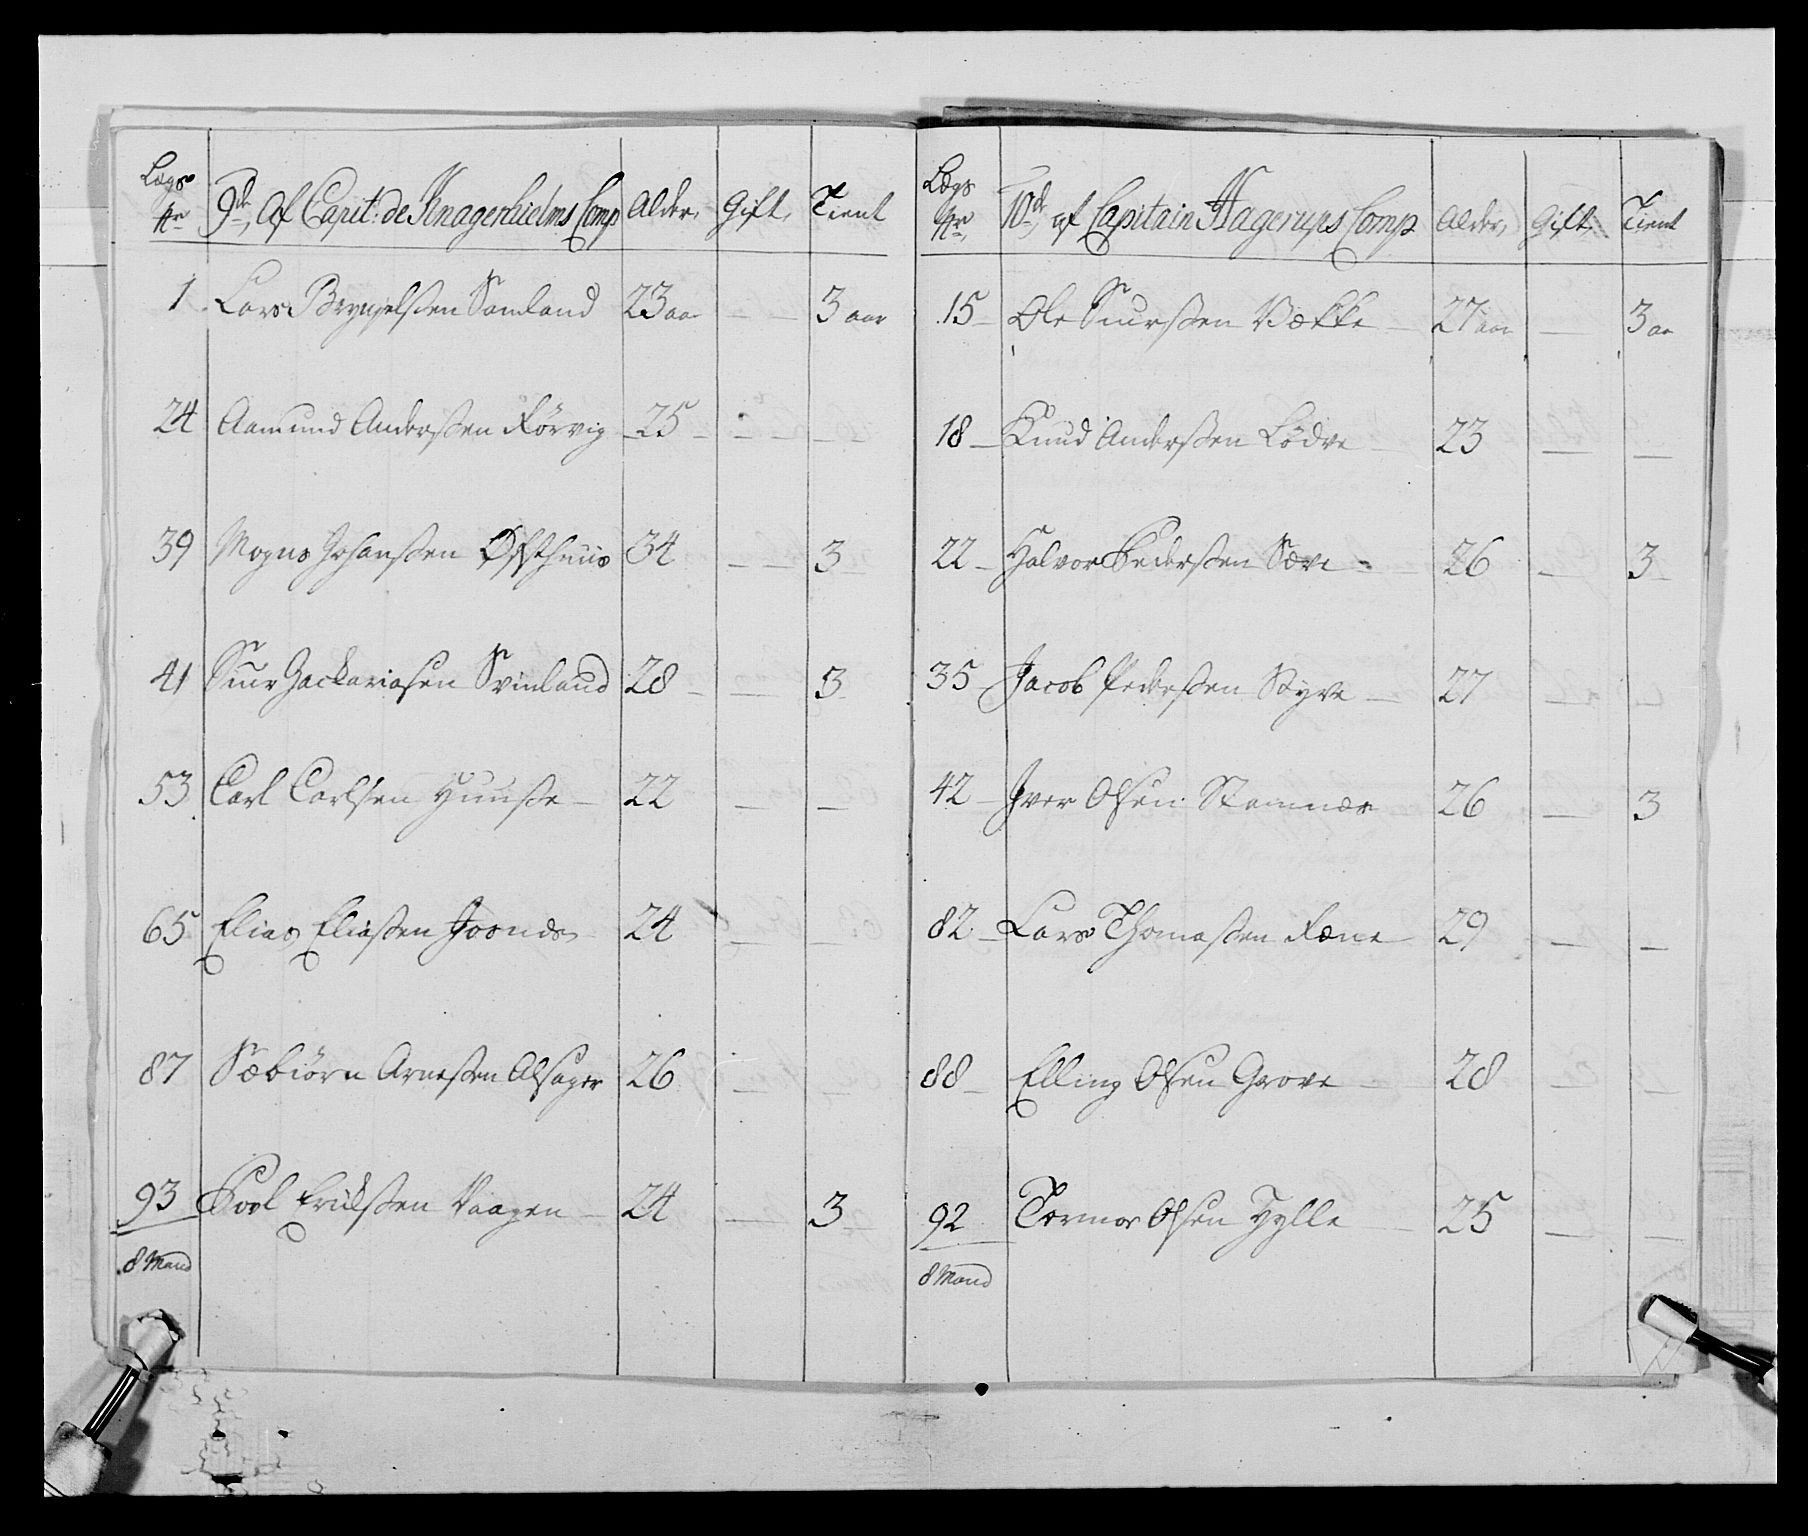 Lægs Nr 9de, Af Capit: de Knagenhielms Comp Alder, Gift, Tient
1 Lars Bryngelsßen Samland 23 aar - - 3 aar
24 Aamund Anderßen Rörvig - 25 - - - -
39 Mogns Johanßen Østhuus 34 - - 3
41 Siur Zackariasen Svinland 28 - - 3
53 Carl Carlsen Huuße - 22 - -
65 Elias Eliaßen Joends 24 - -
87 Sæbiörn Arneßen Alsager 26 - -
93 Poel Erickßen Vaagen - 24 - 3
8 Mand
Lægs Nr, 10de, af Capitain Hagerups Comp Alder, Gift, Tient
15 - Ole Siurßen Bække - 27 aar - 3 aar
18 - Knud Anderßen Lödve - 23 - -
22 - Halvor Pederßen Sæve - 26 - 3
35 Jacob Pederßen Styve - 27 -
42 - Iver Olsen Stamnæs 26 - 3
82 - Lars Thomaßen Ræne 29 - -
88 - Elling Olsen Grove - 28 - -
92 Tormor Olsen Hylle - 25 - -
8 Mand